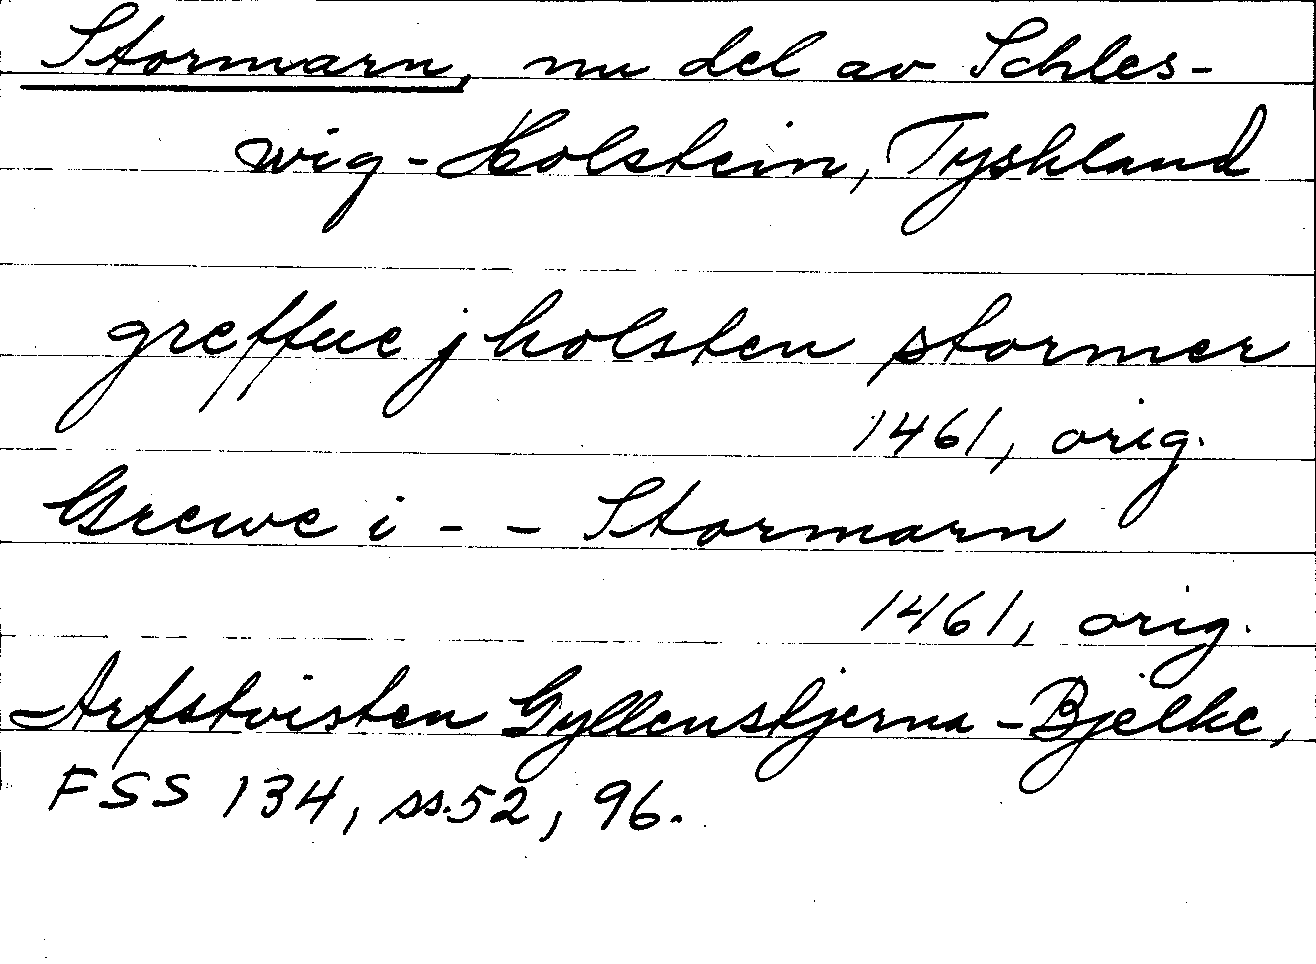 Stormarn, nu del av Schles-
wig-Holstein, Tyskland
greffue j holsten stormer
1461, orig.
Grewe i - - Stormarn
1461, orig.
Arfstvisten Gyllenstjerna - Bjelke,
FSS 134, ss. 52, 96.